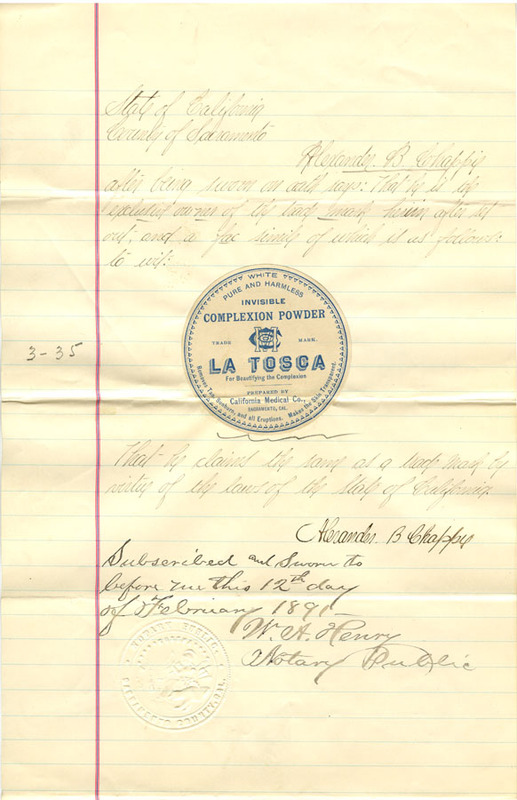 State of California
County of Sacramento
Alexander B Chappis
after being sworn on oath says: That he is the
exclusive owner of the trade mark herein after set
out, and a fac simile of which is as follows:
to wit:
WHITE
PURE AND HARMLESS
INVISIBLE
COMPLEXION POWDER
TRADE MARK.
LA TOSCA
For Beautifying the Complexion
PREPARED BY
California Medical Co.,
SACRAMENTO, CAL.
Removes Tan, Sunburn, and all Eruptions. Makes the Skin Transparent.
3-35
That he claims the same as a trade mark by
virtue of the laws of the State of California.
Alexander B Chappis
Subscribed and Sworn to
before me this 12th day
of February 189
W. A. Henry
Notary Public
NOTARY PUBLIC.
SACRAMENTO COUNTY, CAL.